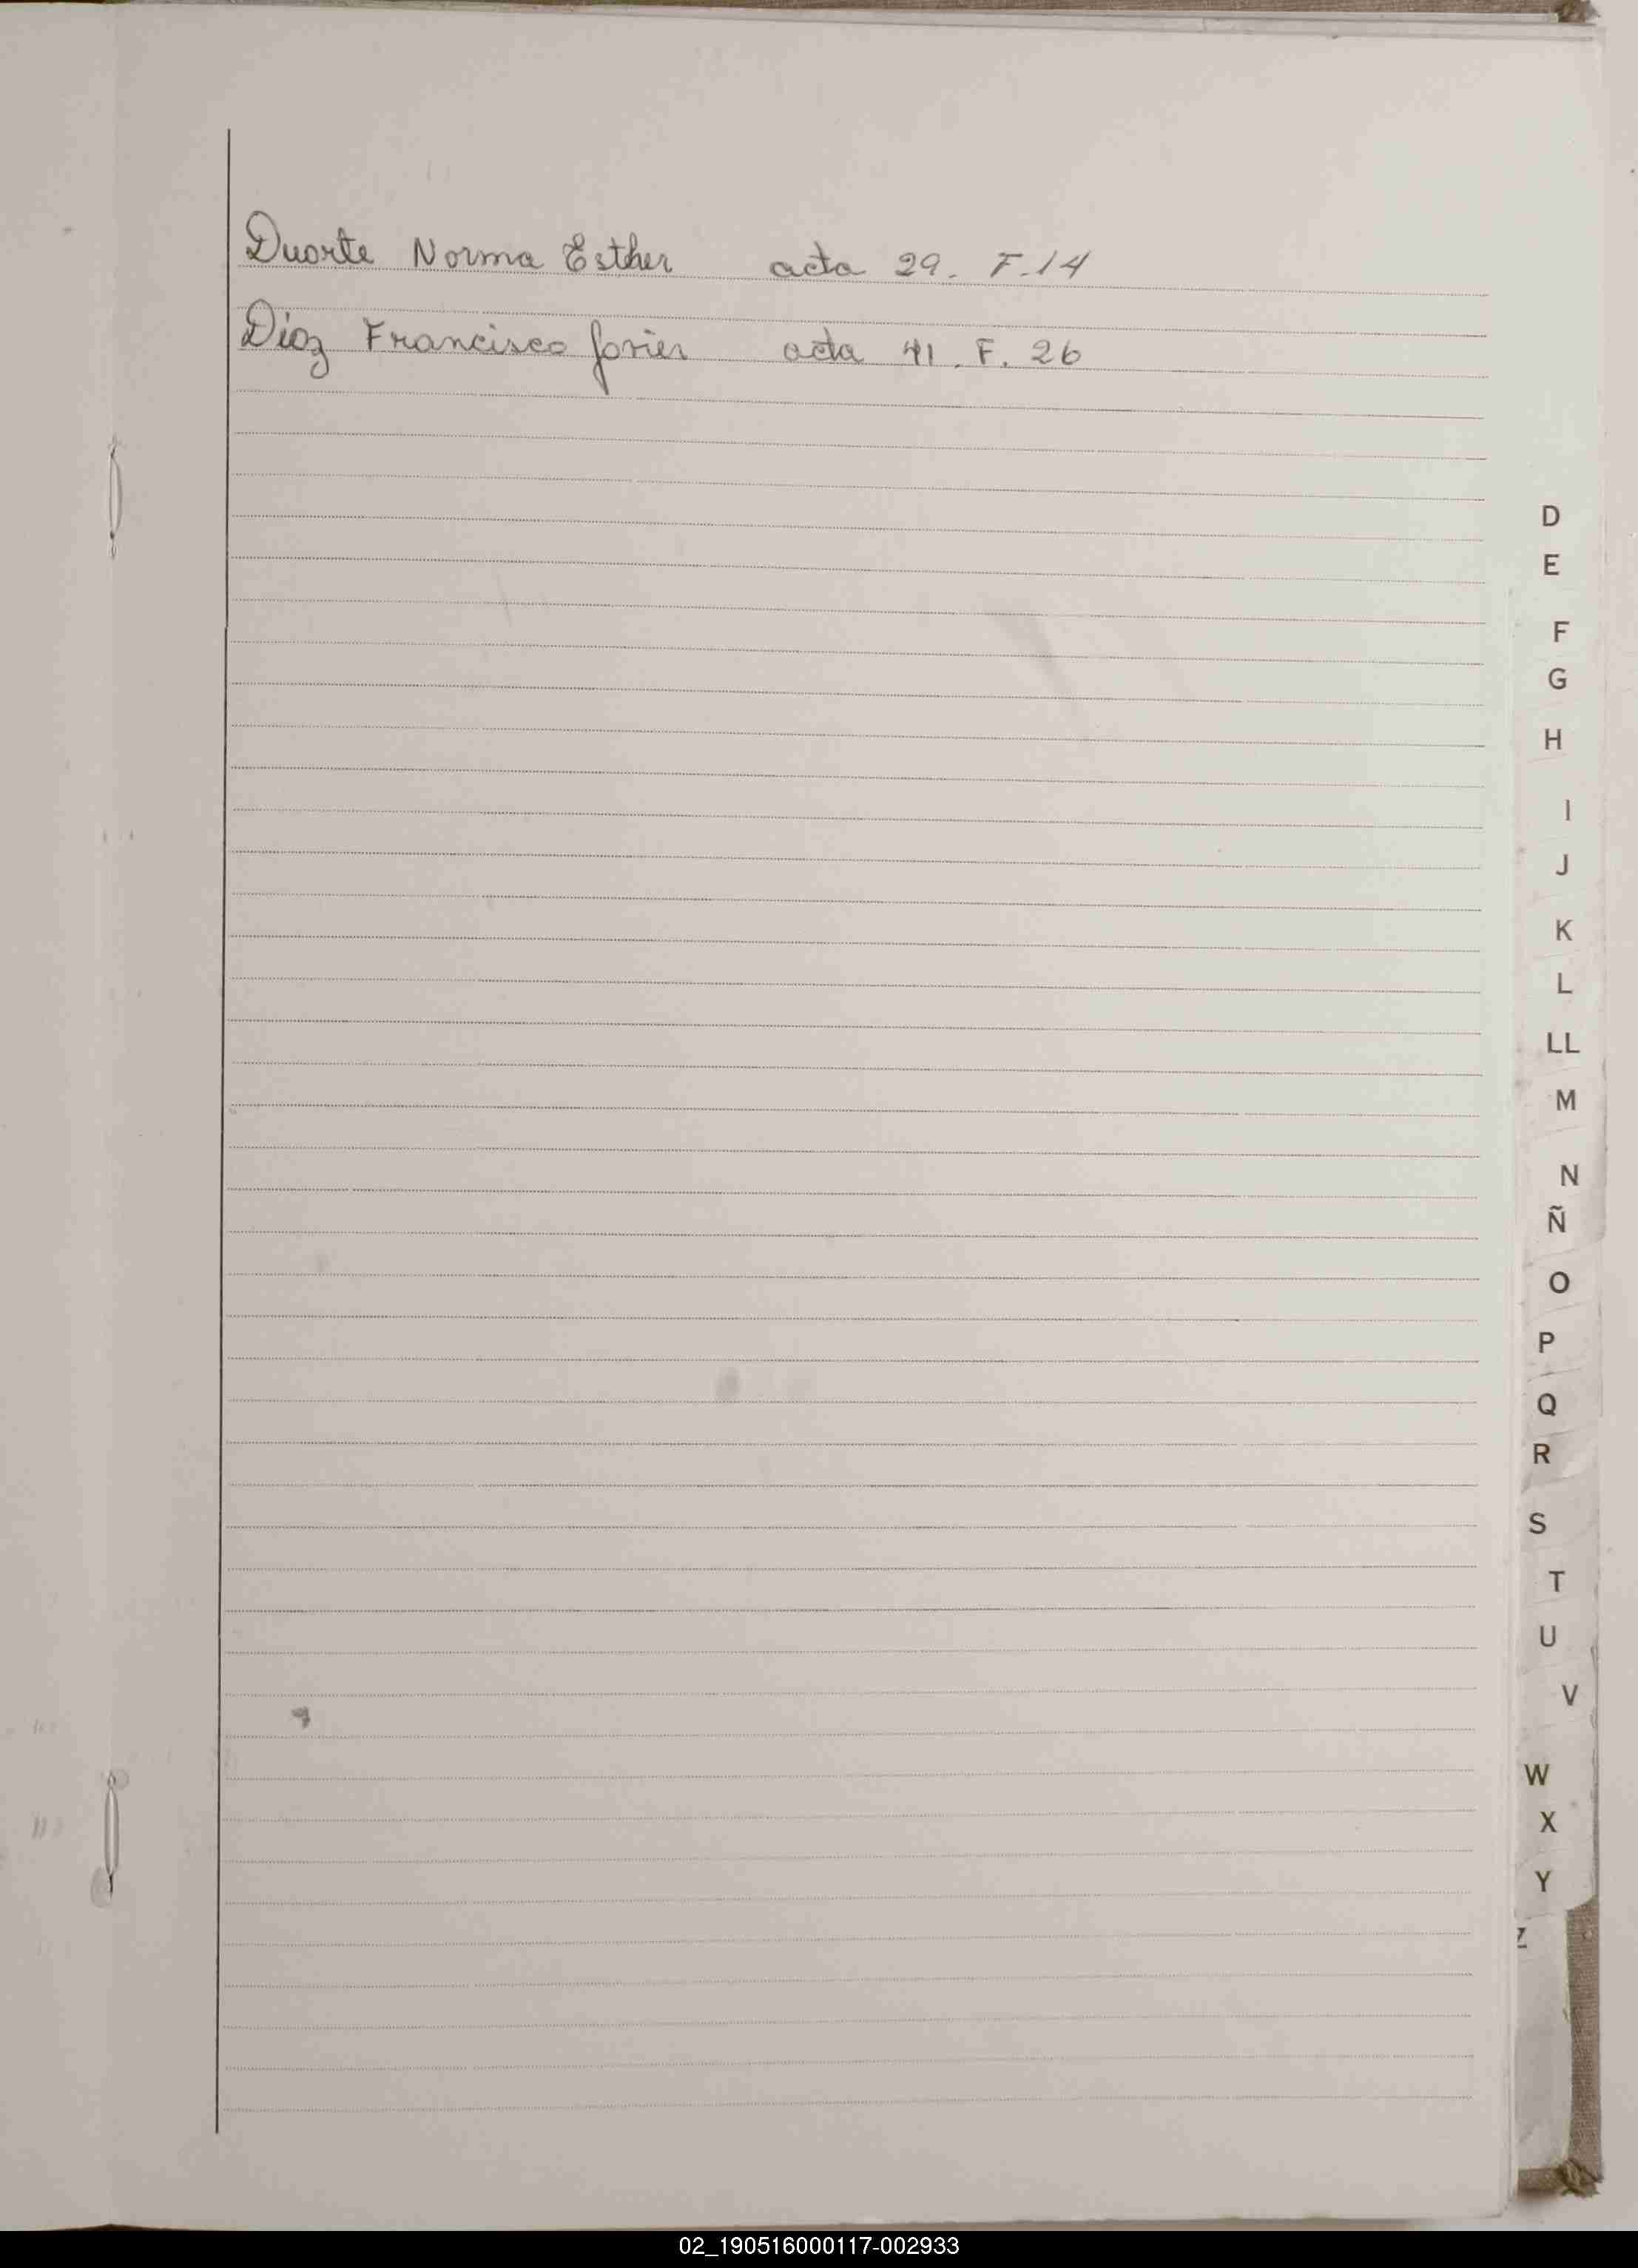 Duarte Norma Esther acta 29. F.14
Diaz Francisco Javier acta 41. F. 26
D
E
F
G
H
I
J
K
L
LL
M
N
Ñ
O
P
Q
R
S
T
U
V
W
X
Y
Z
02_190516000117-002933